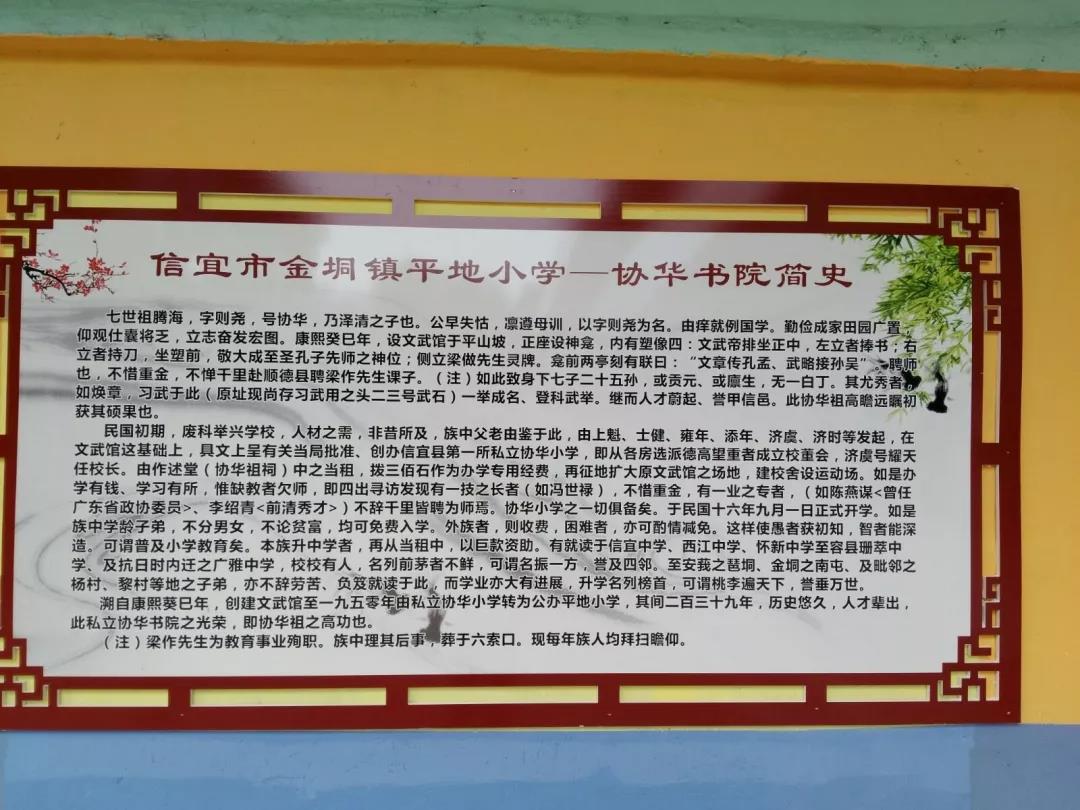 信宜市金垌镇平地小学—协华书院简史
七世祖腾海，字则尧，号协华，乃泽清之子也。公早失怙，凛遵母训，以字则尧为名。由痒就例国学。勤俭成家田园广置，
仰观仕囊将乏，立志奋发宏图。康熙癸巳年，设文武馆于平山坡，正座设神龛，内有塑像四：文武帝排坐正中，左立者捧书；右
立者持刀，坐塑前，敬大成至圣孔子先师之神位；侧立梁做先生灵牌。龛前两亭刻有联曰：“文章传孔孟、武略接孙吴”。聘师
也，不惜重金，不惮千里赴顺德县聘梁作先生课子。（注）如此致身下七子二十五孙，或贡元、或廪生，无一白丁。其尤秀者，
如焕章，习武于此（原址现尚存习武用之头二三号武石）一举成名、登科武举。继而人才蔚起、誉甲信邑。此协华祖高瞻远瞩初
获其硕果也。
民国初期，废科举兴学校，人材之需，非昔所及，族中父老由鉴于此，由上魁、士健、雍年、添年、济虞、济时等发起，在
文武馆这基础上，具文上呈有关当局批准、创办信宜县第一所私立协华小学，即从各房选派德高望重者成立校董会，济虞号耀天
任校长。由作述堂（协华祖祠）中之当租，拨三佰石作为办学专用经费，再征地扩大原文武馆之场地，建校舍设运动场。如是办
学有钱、学习有所，惟缺教者欠师，即四出寻访发现有一技之长者（如冯世禄），不惜重金，有一业之专者，（如陈燕谋<曾任
广东省政协委员>、李绍青<前清秀才>）不辞千里皆聘为师焉。协华小学之一切俱备矣。于民国十六年九月一日正式开学。如是
族中学龄子弟，不分男女，不论贫富，均可免费入学。外族者，则收费，困难者，亦可酌情减免。这样使愚者获初知，智者能深
造。可谓普及小学教育矣。本族升中学者，再从当租中，以巨款资助。有就读于信宜中学、西江中学、怀新中学至容县珊萃中
学、及抗日时内迁之广雅中学，校校有人，名列前茅者不鲜，可谓名振一方，誉及四邻。至安莪之琶垌、金垌之南屯、及毗邻之
杨村、黎村等地之子弟，亦不辞劳苦、负笈就读于此，而学业亦大有进展，升学名列榜首，可谓桃李遍天下，誉垂万世。
溯自康熙癸巳年，创建文武馆至一九五零年由私立协华小学转为公办平地小学，其间二百三十九年，历史悠久，人才辈出，
此私立协华书院之光荣，即协华祖之高功也。
（注）梁作先生为教育事业殉职。族中理其后事，葬于六索口。现每年族人均拜扫瞻仰。